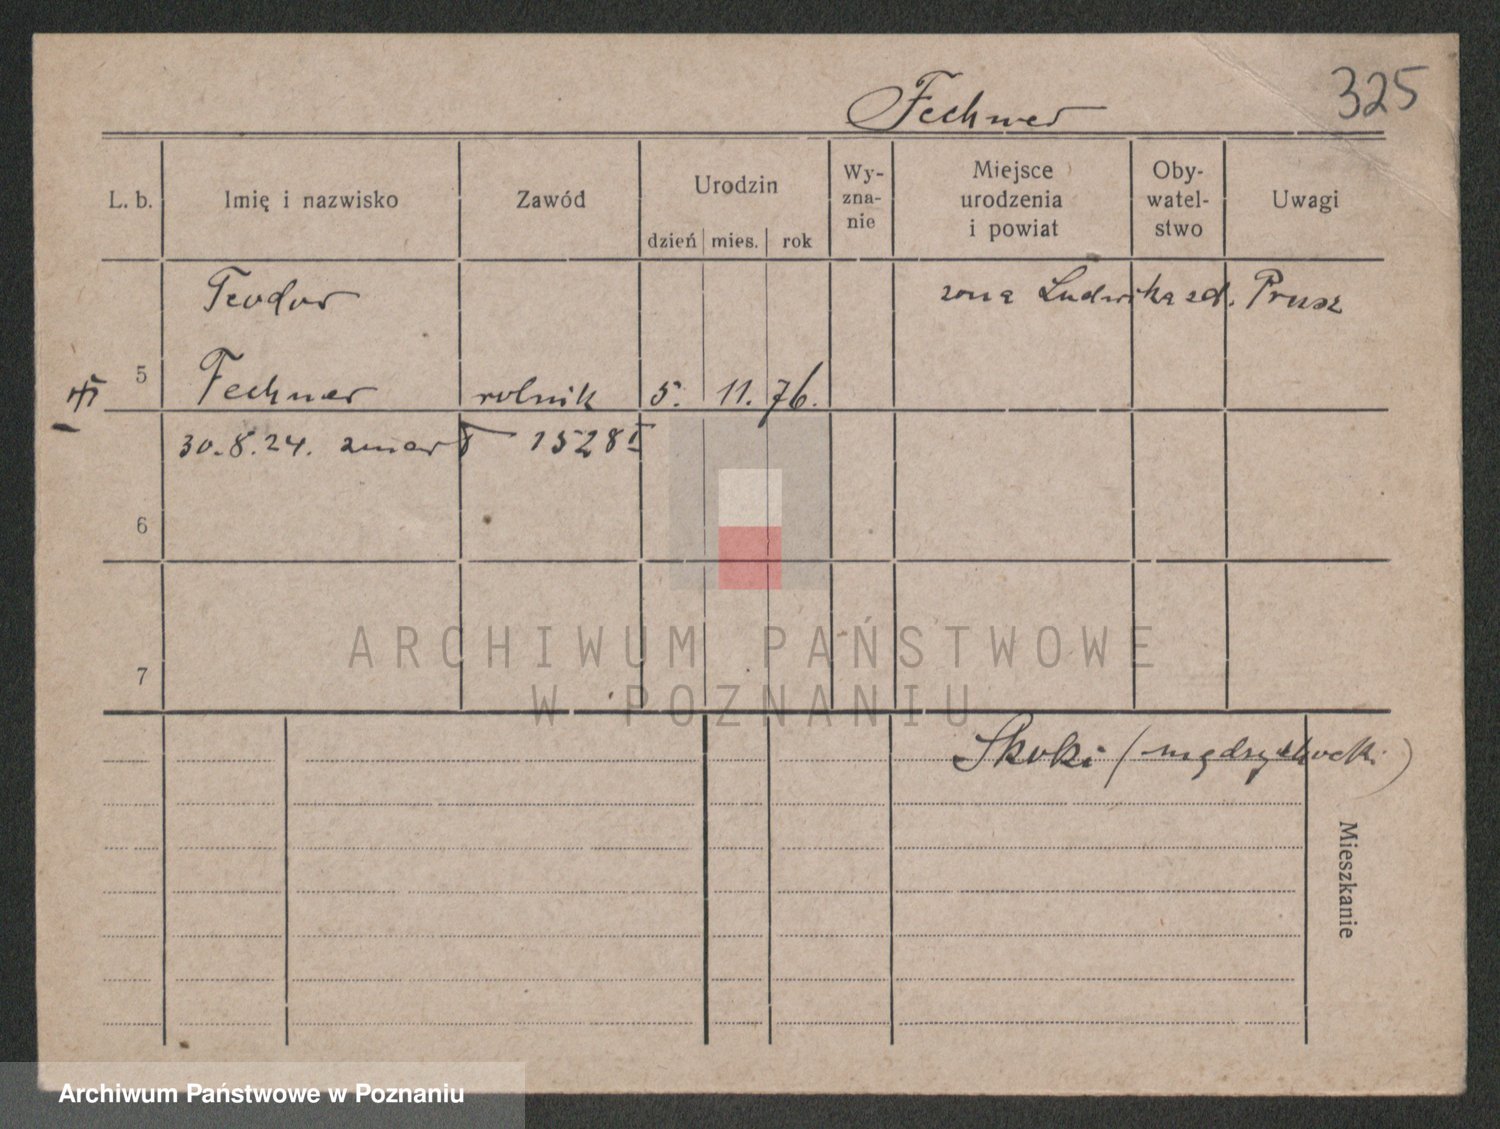 325
Fechner
L. b.
Imię i nazwisko
Zawód
Urodzin
dzień mies. rok
Wy-
zna-
nie
Miejsce
urodzenia
i powiat
Oby-
watel-
stwo
Uwagi
Teodor
żona Ludwika zd. Prusz
5 Fechner rolnik 5. 11. 76.
30.8.24. zmarł 1528
6
7
ARCHIWUM PAŃSTWOWE
W POZNANIU
Skoki (międzychocki)
Mieszkanie
Archiwum Państwowe w Poznaniu